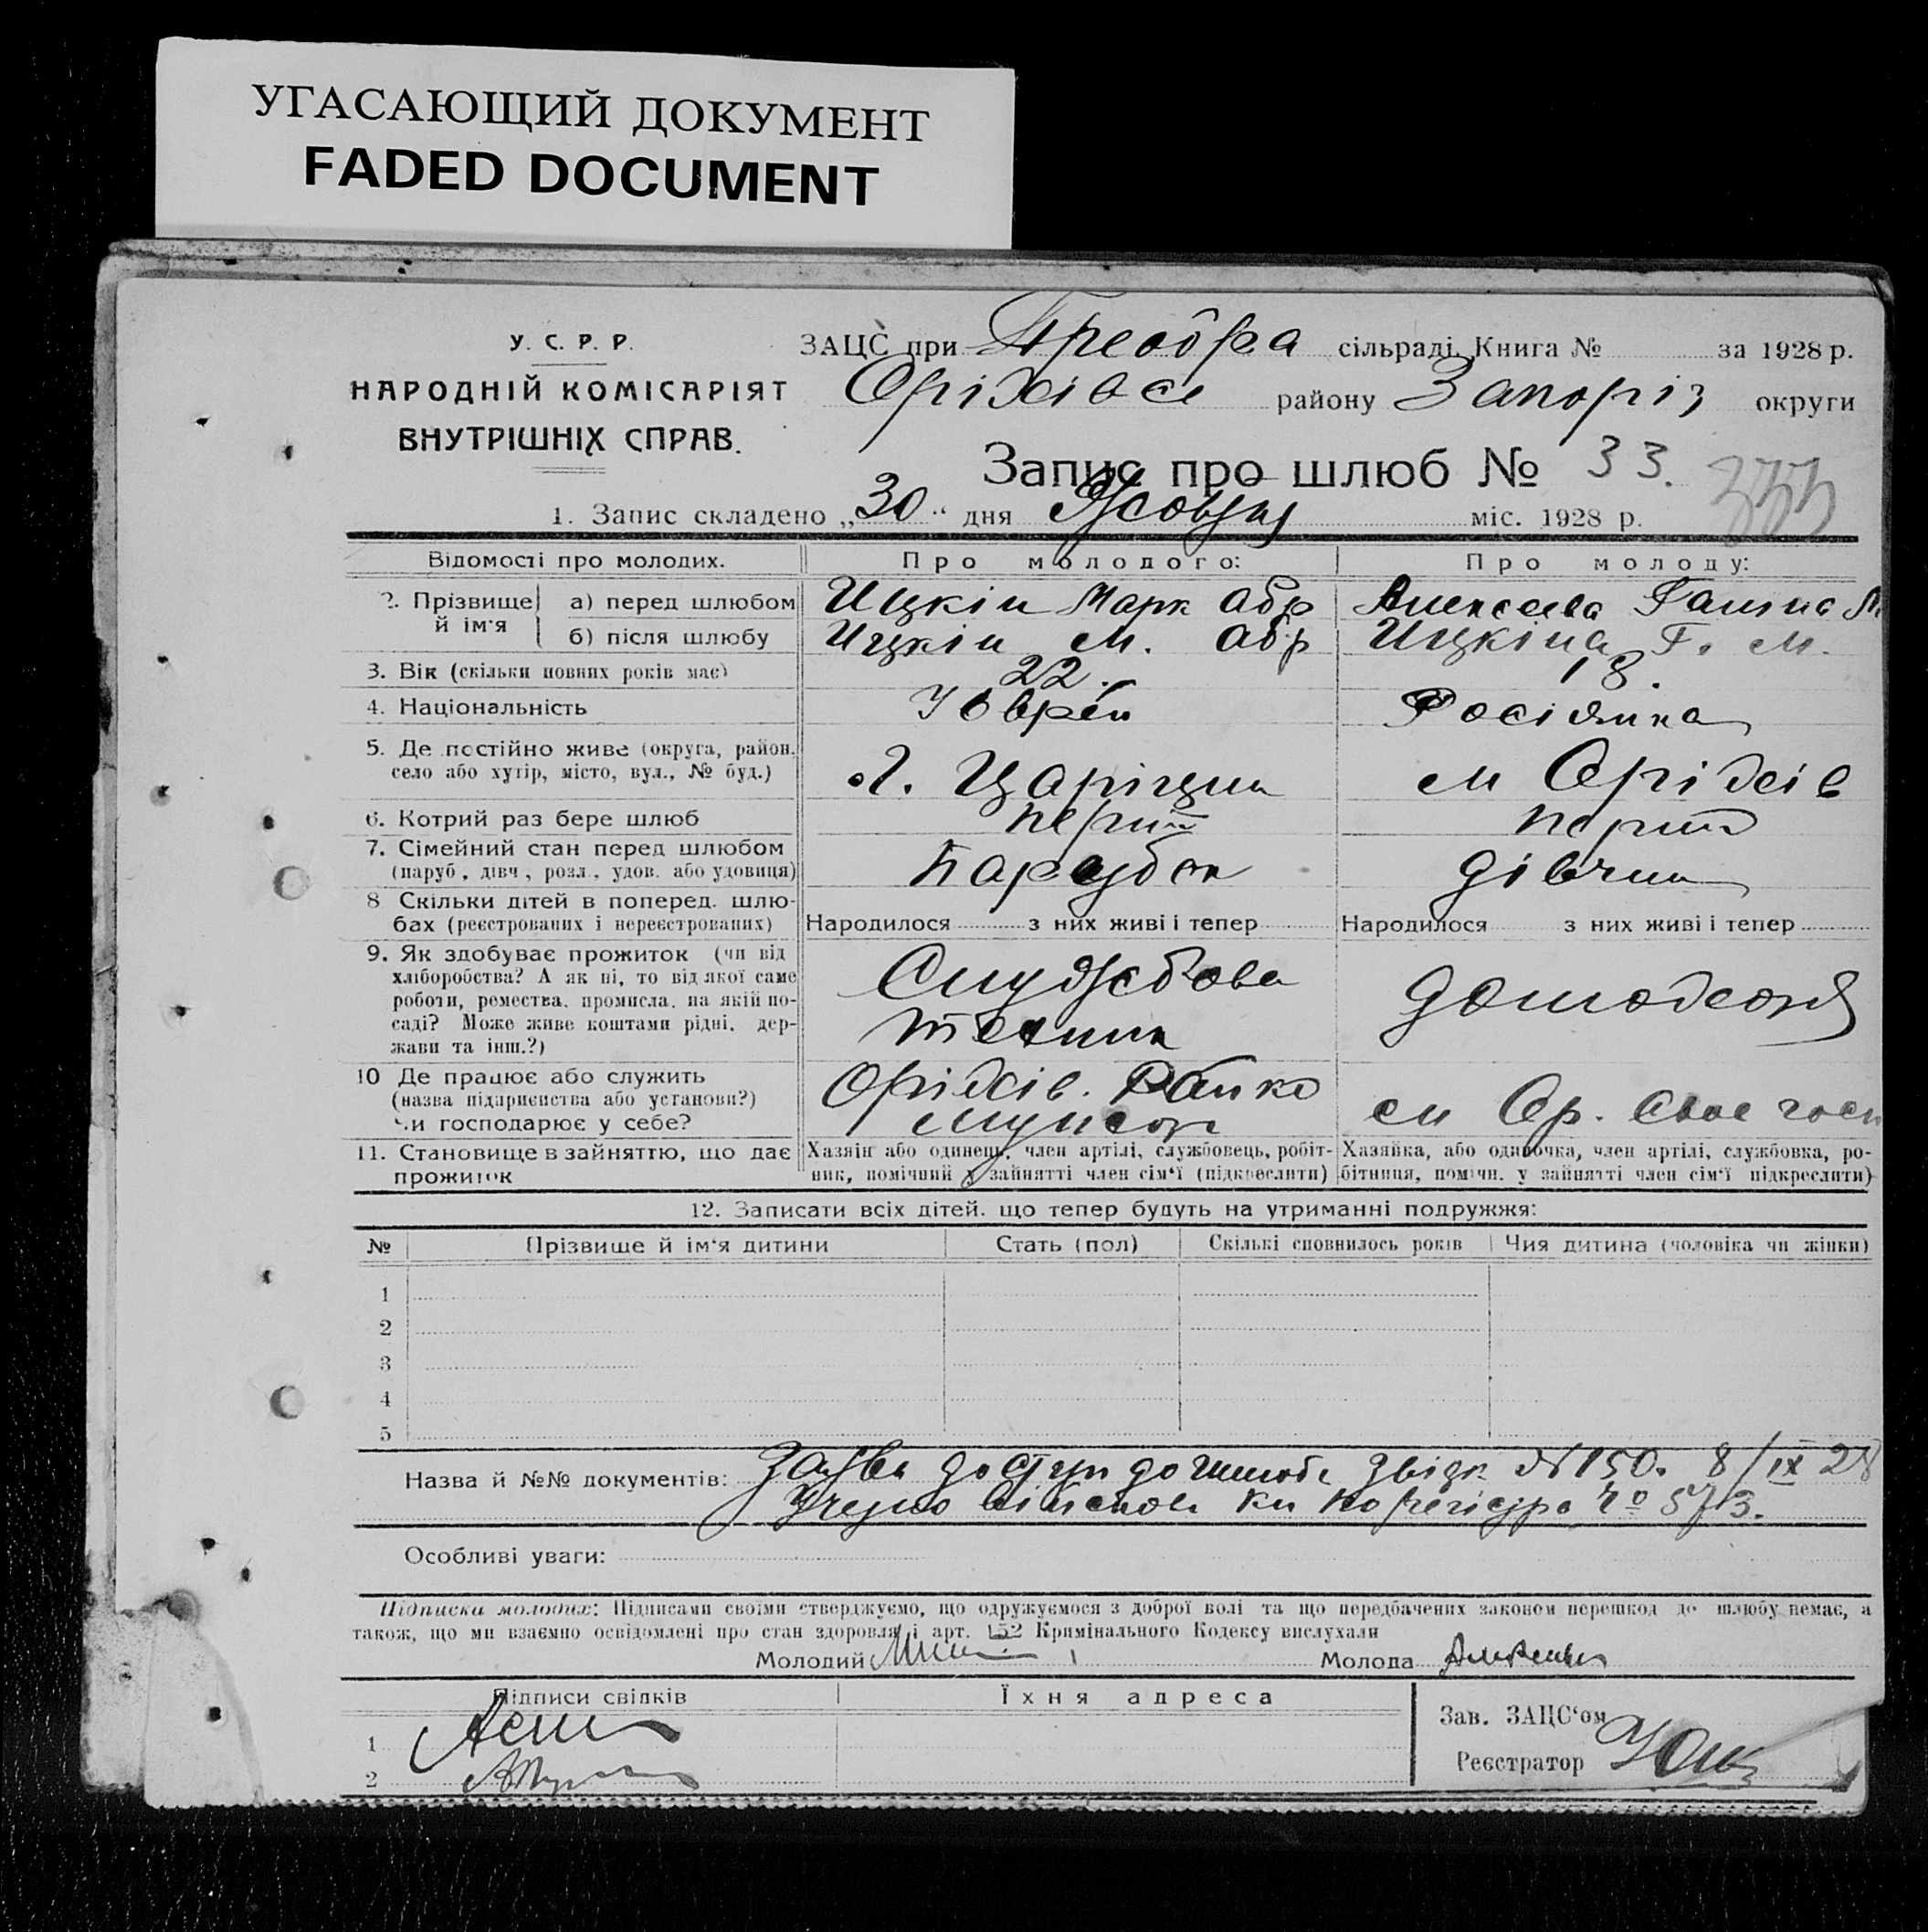 УГАСАЮЩИЙ ДОКУМЕНТ
FADED DOCUMENT
У. С. Р. Р.
НАРОДНІЙ КОМІСАРІЯТ
ВНУТРІШНІХ СПРАВ.
ЗАЦС при Преобра сільраді Книга № за 1928 р.
Оріхівсь району Запоріз округи
Запис про шлюб № 33. 333
1. Запис складено „30“ дня Жовтня міс. 1928 р.
Відомості про молодих. Про молодого: Про молоду:
2. Прізвище й ім'я
а) перед шлюбом Ицкін Марк Абр Алексеева Галина М
б) після шлюбу Ицкін М. Абр Ицкіна Г. М.
3. Вік (скільки повних років має) 22 18.
4. Національність Росіянка
5. Де постійно живе (округа, район, село або хутір, місто, вул., № буд.) Царіцин м Оріхів
6. Котрий раз бере шлюб перш перш
7. Сімейний стан перед шлюбом Парубок дівчина
(паруб., дівч., розл., удов. або удовиця)
8 Скільки дітей в поперед. шлюбах (реєстрованих і нереєстрованих) Народилося з них живі і тепер Народилося з них живі і тепер
9. Як здобуває прожиток (чи від хліборобства? А як ні, то від якої саме роботи, ремества, промисла, на якій посаді? Може живе коштами рідні, держави та інш.?)
технік
10 Де працює або служить (назва підприємства або установи?) чи господарює у себе? Оріхів. м Ор. Своє госп
11. Становище в зайняттю, що дає прожиток
Хазяін або одинець, член артілі, службовець, робітник, помічний у зайнятті член сім'ї (підкреслити)
Хазяйка, або одиночка, член артілі, службовка, робітниця, помічн. у зайнятті член сім'ї підкреслити)
12. Записати всіх дітей, що тепер будуть на утриманні подружжя:
№ Прізвище й ім'я дитини Стать (пол) Скількі сповнилось років Чия дитина (чоловіка чи жінки)
1
2
3
4
5
Назва й №№ документів: до шлюбе № 150. 8/IX 28
573.
Особливі уваги:
Підписка молодих: Підписами своїми стверджуємо, що одружуємося з доброї волі та що передбачених законом перешкод до шлюбу немає, а
також, що ми взаємно освідомлені про стан здоровля і арт. 152 Кримінального Кодексу вислухали
Молодий Молода
Підписи свідків Їхня адреса
Зав. ЗАЦС'ом
1
Реєстратор
2